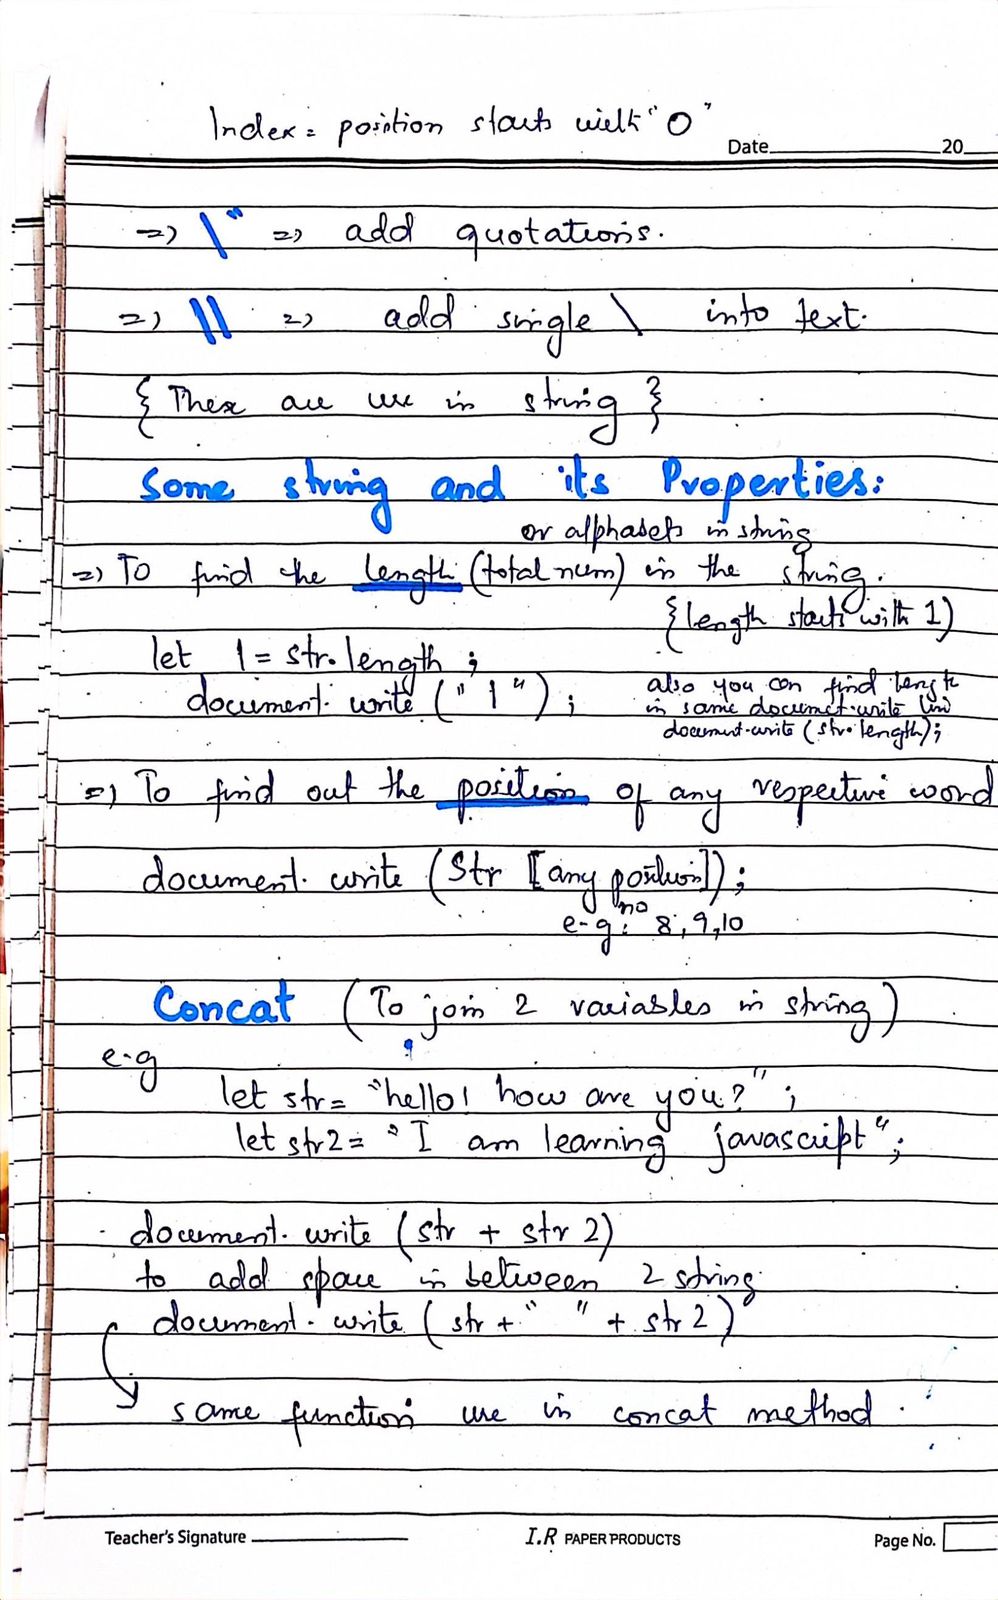 Index = position starts with "0"
Date 20
=> \" => add quotations.
=> \\ => add single \ into text.
{ These are use in string }
Some string and its Properties:
or alphabets in string
=> To find the length (total num) in the string.
{length starts with 1)
let l = str.length ;
document.write (" l ") ;
also you can find length
in same document.write
document.write (str.length);
=> To find out the position of any respective word
document.write (Str [any position]) ;
no
e-g: 8, 9, 10
Concat (To join 2 variables in string)
e.g
let str = "hello! how are you?" ;
let str2 = "I am learning javascript" ;
document.write (str + str 2)
to add space in between 2 string.
document.write ( str + " " + str 2)
same function use in concat method.
Teacher's Signature
I.R PAPER PRODUCTS
Page No.